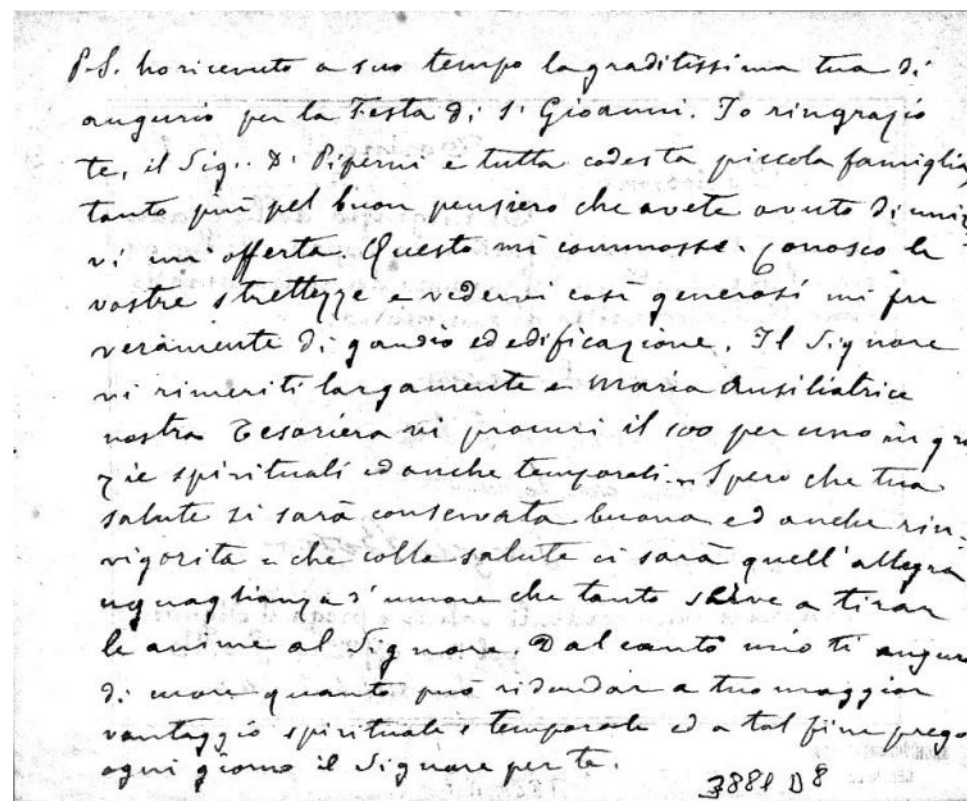 P.S. ho ricevuto a suo tempo la graditissima tua di
augurio per la Festa di S. Giovanni. Io ringrazio
te, il Sig. D. Piperni e tutta codesta piccola famiglia,
tanto più pel buon pensiero che avete avuto di unir
vi un' offerta. Questo mi commosse. Conosco le
vostre strettezze e vedervi così generosi mi fu
veramente di gaudio ed edificazione. Il Signore
vi rimeriti largamente e Maria Ausiliatrice
nostra Tesoriera vi procuri il 100 per uno in gra
zie spirituali ed anche temporali. Spero che tua
salute si sarà conservata buona ed anche rin-
vigorita e che colla salute ci sarà quell'allegra
uguaglianza d'umore che tanto serve a tirar
le anime al Signore. Dal canto mio ti auguro
di cuore quanto può ridondar a tuo maggior
vantaggio spirituale e temporale ed a tal fine prego
ogni giorno il Signore per te.
3881 D8